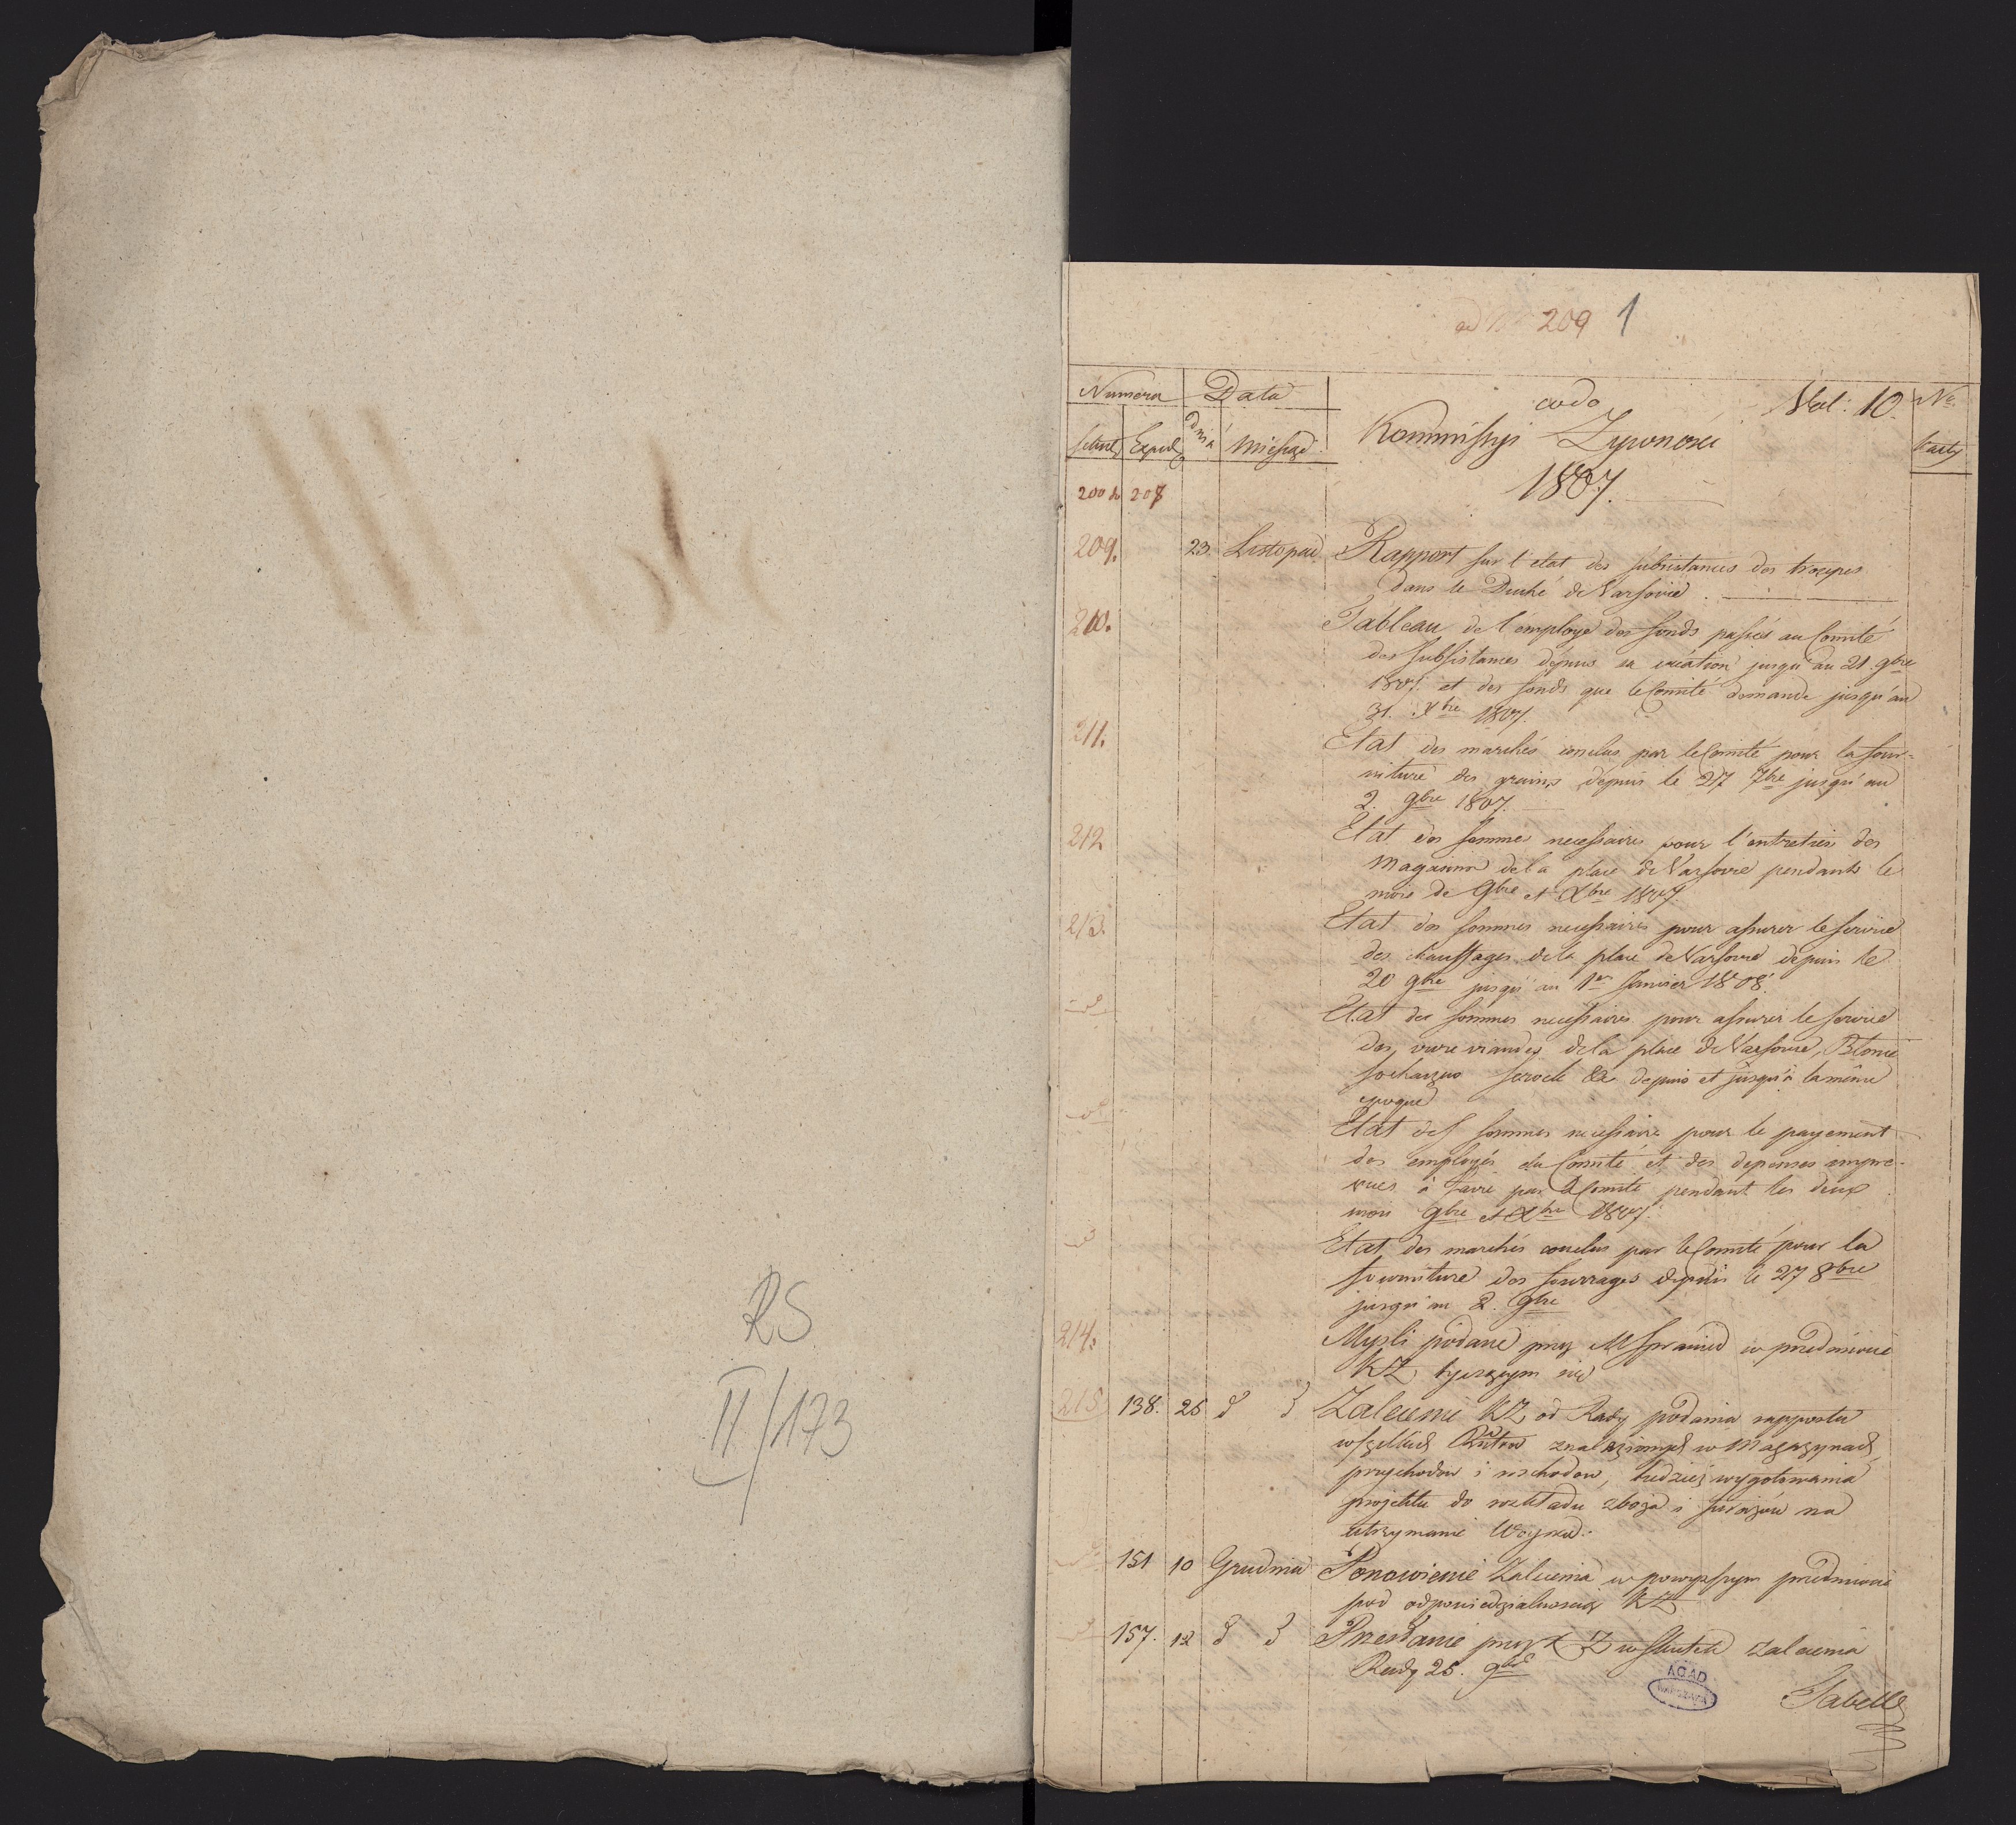 RS
II/173
ad No 209 1
Numera Data
codo Vol: 10. No
Exped dnia Miesiąc Kommissyi Zywności Karty
200 do 208 1807.
209. 23 Listopad Rapport sur l'etat des subsistances des troupes
dans le Duché de Varsovie.
210. Tableau de l'employe des fonds passés au Comité
des Subsistances depuis sa création jusqu'au 21 9bre
1807. et des fonds que le Comité demande jusqu'au
31. Xbre 1807.
211. Etat des marchés conclus par le Comité pour la four-
niture des grains depuis le 27 7bre jusqu'au
2. 9bre 1807.
212 Etat des sommes necessaires pour l'entretien des
Magasins de la place de Varsovie pendants le
mois de 9bre et Xbre 1807.
213. Etat des sommes necessaires pour assurer le service
des chauffages de la place de Varsovie depuis le
20 9bre jusqu'au 1er Janvier 1808.
Etat des sommes necessaires pour assurer le service
des vivre viandes de la place de Varsovie, Blonie
Sochaczew Serock &c depuis et jusqu'à la même
epoque
Etat des sommes necessaire pour le payement
des employés du Comité et des depenses impre-
vues à faire par le Comité pendant les deux
mois 9bre et Xbre 1807.
Etat des marchés conclus par le Comité pour la
fourniture des fourrages depuis le 27 8bre
jusqu'au 2. 9bre
214. Mysli podane przez M Sprawied w przedmiocie
KZ tyczącym się
215 138. 25 d d Zalecenie KZ od Rady podania rapportu
wszelkich znalezionych w Magazynach,
przychodow i rozchodow, tudzież wygotowania
projektu do rozkładu zboża i furażów na
utrzymanie Woyska.
151 10 Grudnia Ponowienie Zalecenia w powyższym przedmiocie
pod odpowiedzialnością KZ
157. 12 d d Przesłanie przez KZ w skutek zalecenia
Rady 25. 9bra
AGAD
WARSZAWA
Tabelle